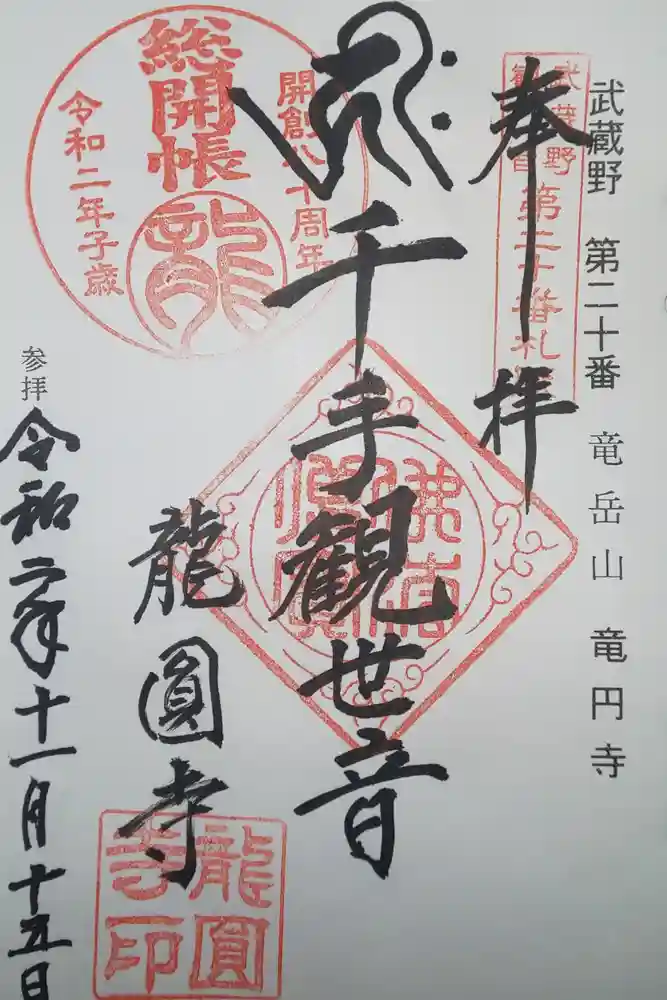 武蔵野 第二十番 竜岳山 竜円寺
武蔵野
第二十番札所
奉拝
千手観世音
龍圓寺
開創八十周年
総開帳
龍
令和二年子歳
佛法僧寳
龍圓
寺印
参拝
令和二年十一月十五日